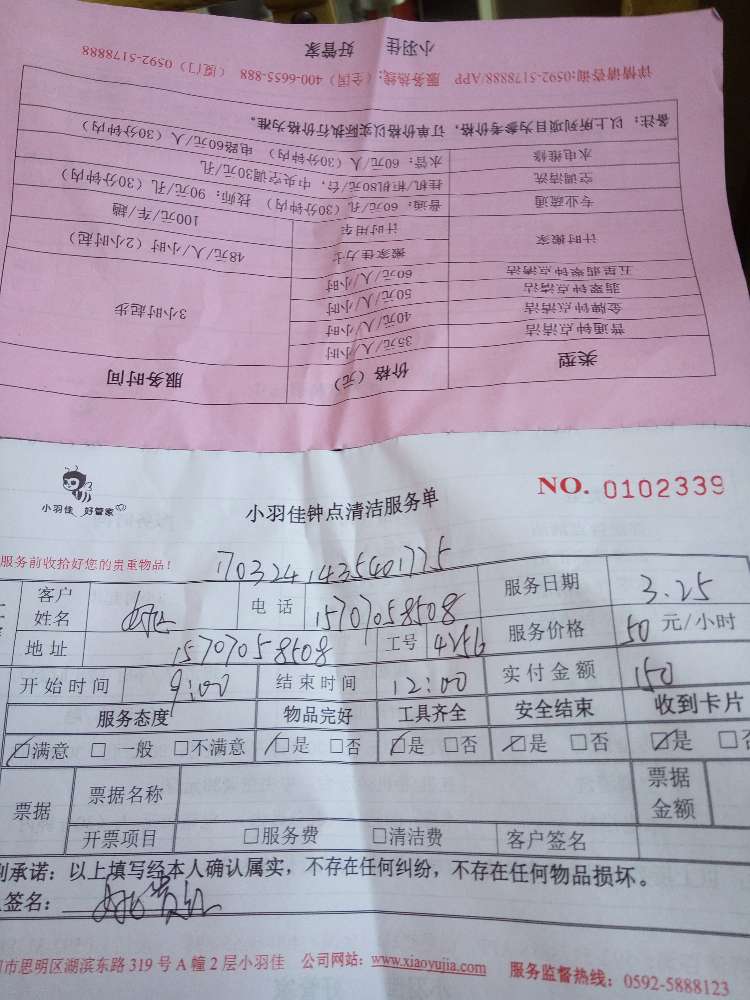 小羽佳 好管家
详情请咨询:0592-5178888/APP 服务热线:(全国)400-6655-888 (厦门)0592-5178888
备注:以上所列项目为参考价格,订单价格以实际执行价格为准。
水电维修 水管:60元/人(30分钟内) 电路60元/人(30分钟内)
空调清洗 挂机/柜机80元/台,中央空调30元/孔
专业疏通 普通:60元/孔(30分钟内) 技师:90元/孔(30分钟内)
计时搬家 计时用车 100元/车/趟
搬家佳力士 48元/人/小时(2小时起)
五星翡翠钟点清洁 60元/人/小时
翡翠钟点清洁 50元/人/小时 3小时起步
金牌钟点清洁 40元/人/小时
普通钟点清洁 35元/人/小时
类型 价格(元) 服务时间
小羽佳 好管家
小羽佳钟点清洁服务单
NO. 0102339
服务前收拾好您的贵重物品!
客户姓名 电话 15707058508 服务日期 3.25
地址 15707058508 工号 4256 服务价格 50元/小时
开始时间 9:00 结束时间 12:00 实付金额 150
服务态度 物品完好 工具齐全 安全结束 收到卡片
满意 □一般 □不满意 是 □否 是 □否 是 □否 是
票据 票据名称 票据金额
开票项目 □服务费 □清洁费 客户签名
承诺:以上填写经本人确认属实,不存在任何纠纷,不存在任何物品损坏。
签名:
市思明区湖滨东路319号A幢2层小羽佳 公司网站:www.xiaoyujia.com 服务监督热线:0592-5888123